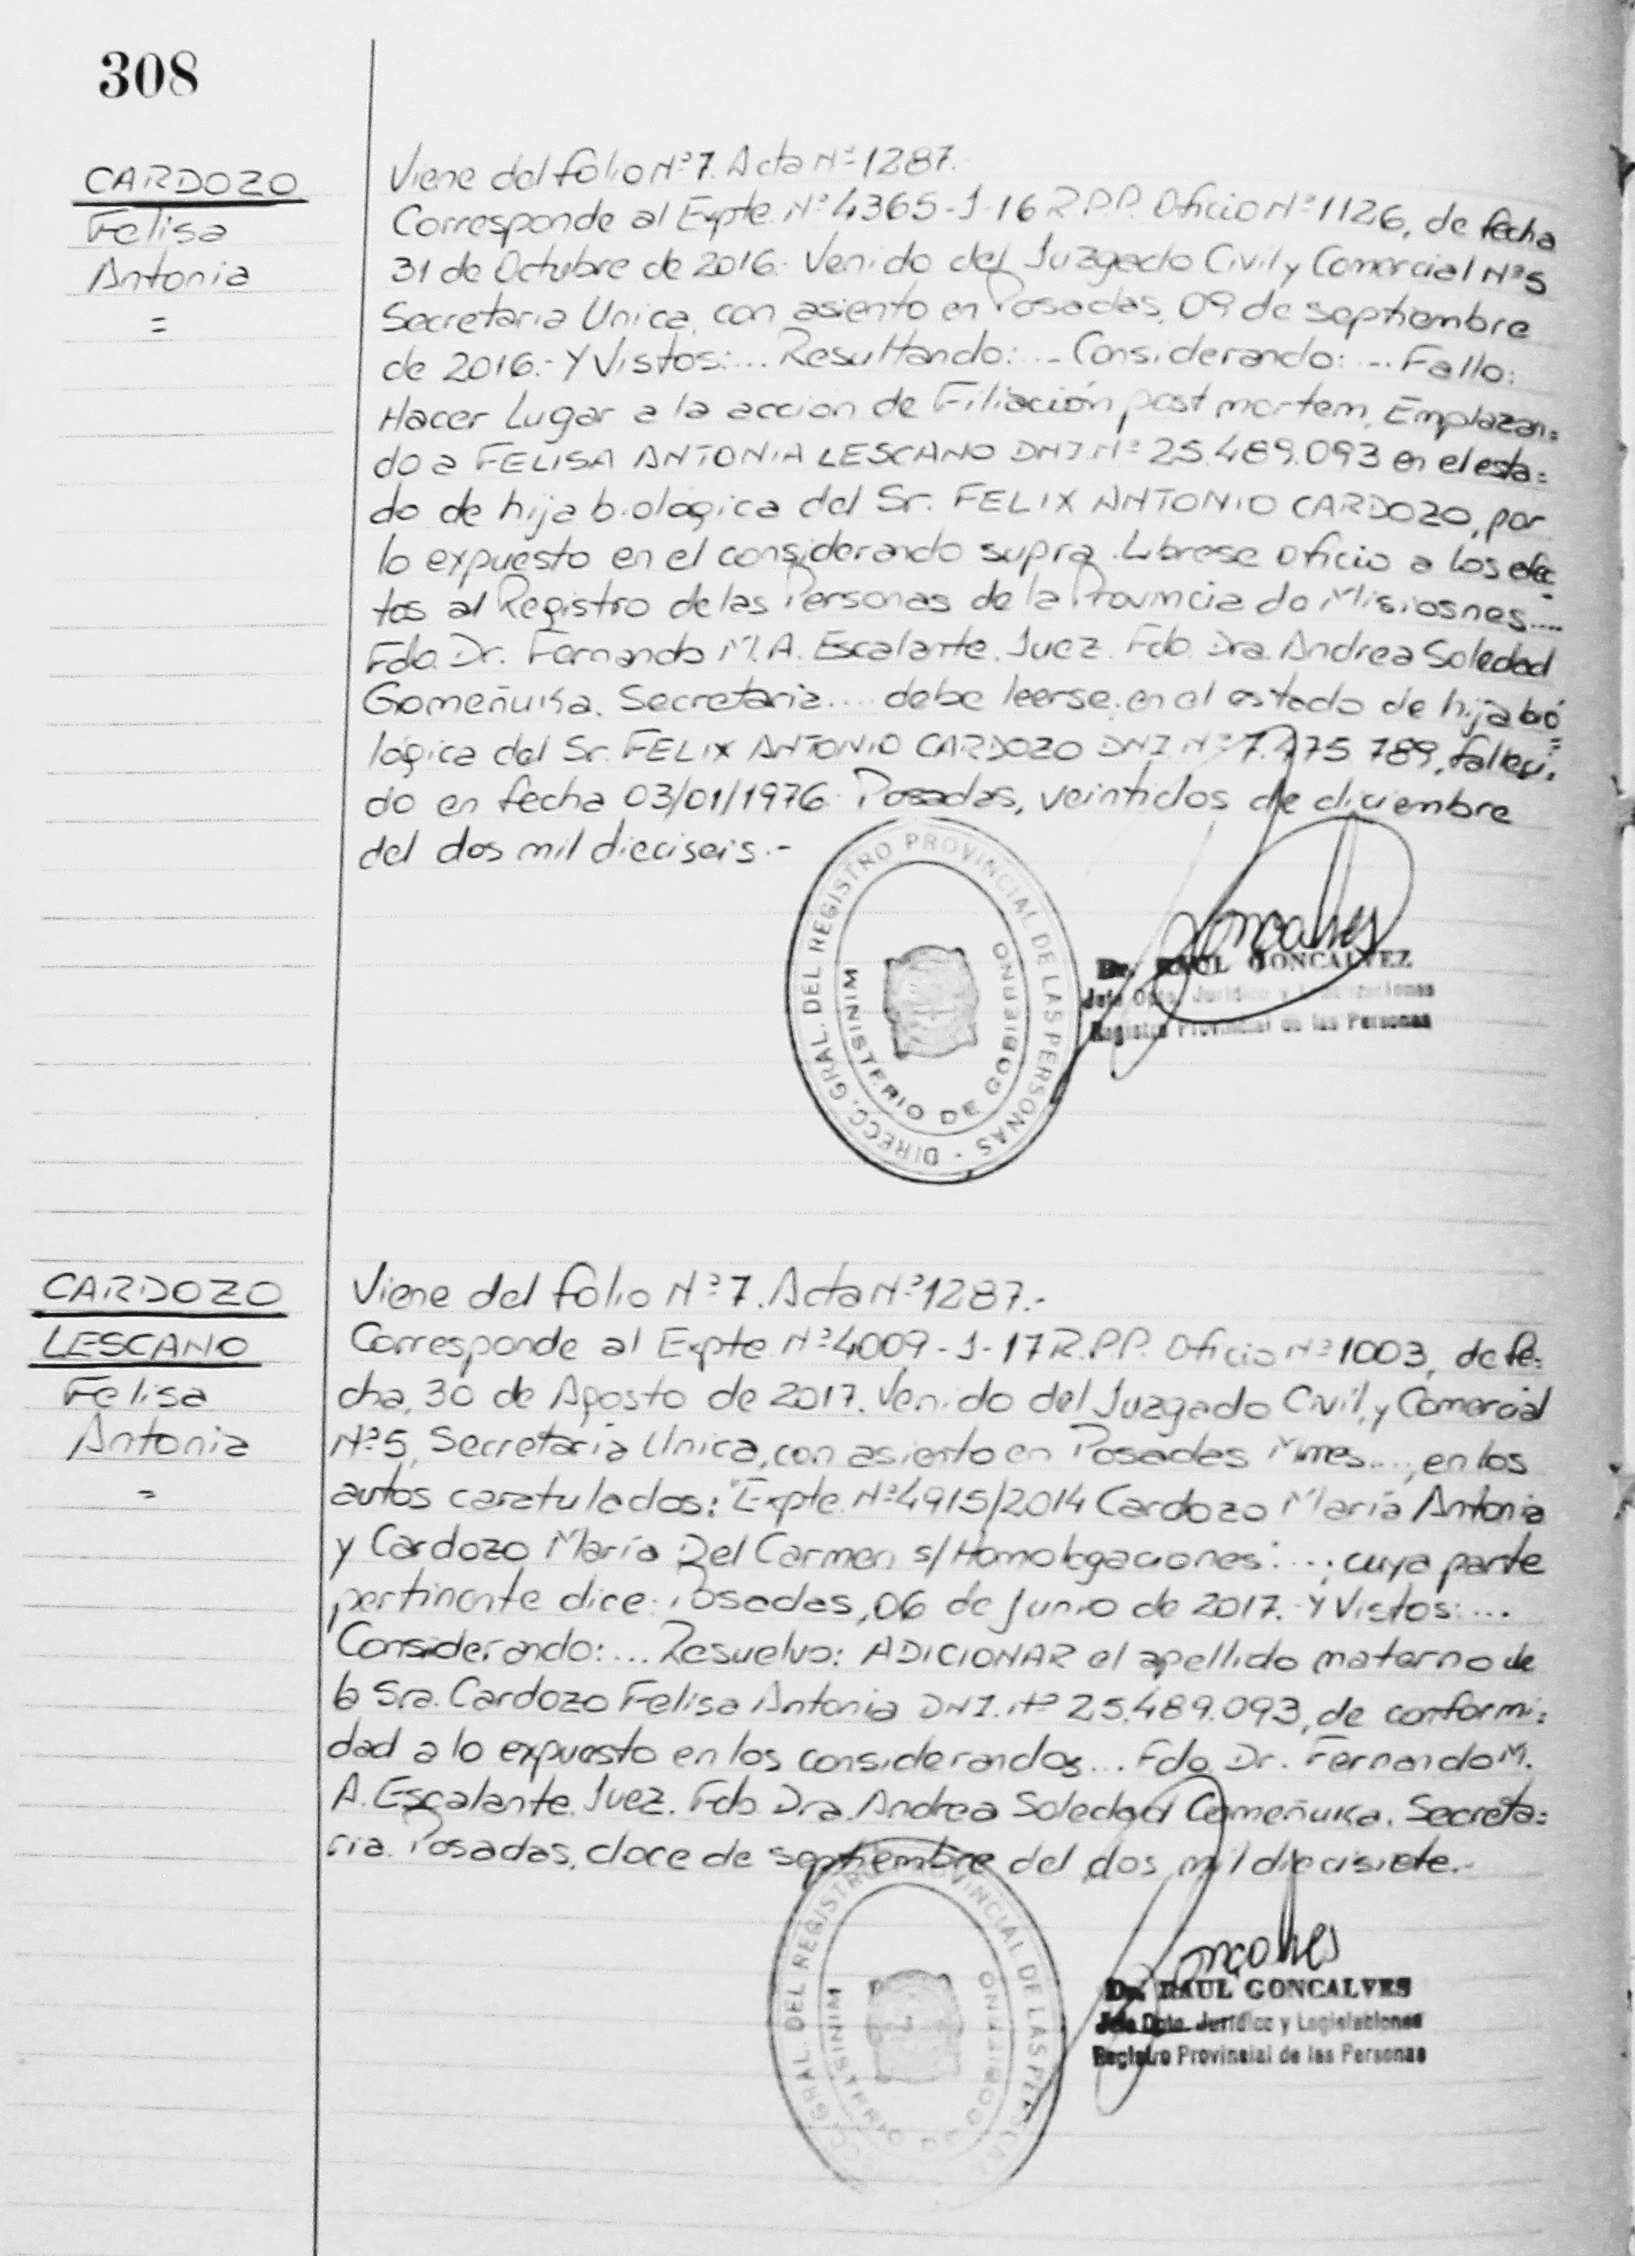 308
CARDOZO
Felisa
Antonia
=
Viene del folio Nº 7. Acta Nº 1287.-
Corresponde al Expte. Nº 4365-J-16 R.P.P. Oficio Nº 1126, de fecha
31 de Octubre de 2016.- Venido del Juzgado Civil y Comercial Nº 5
Secretaria Unica, con asiento en Posadas, 09 de septiembre
de 2016.- Y Vistos:... Resultando:... Considerando:... Fallo:
Hacer Lugar a la accion de Filiación post mortem, Emplazan=
do a FELISA ANTONIA LESCANO DNI. Nº 25.489.093 en el esta=
do de hija biológica del Sr. FELIX ANTONIO CARDOZO, por
lo expuesto en el considerando supra. Librese oficio a los efec=
tos al Registro de las Personas de la Provincia de Misiosnes....
Fdo. Dr. Fernando M. A. Escalante. Juez. Fdo. Dra. Andrea Soledad
Gomeñuka. Secretaria.... debe leerse: en el estado de hija bio=
lógica del Sr. FELIX ANTONIO CARDOZO DNI. Nº 7.475.789, falleci=
do en fecha 03/01/1976. Posadas, veintidos de diciembre
del dos mil dieciseis.-
DIRECC. GRAL. DEL REGISTRO PROVINCIAL DE LAS PERSONAS
MINISTERIO DE GOBIERNO
Goncalves
Dr. RAUL GONCALVEZ
Jefe Dpto. Jurídico y
Registro Provincial de las Personas
CARDOZO
LESCANO
Felisa
Antonia
=
Viene del folio Nº 7. Acta Nº 1287.-
Corresponde al Expte. Nº 4009-J-17 R.P.P. Oficio Nº 1003, de fe=
cha, 30 de Agosto de 2017. Venido del Juzgado Civil, y Comercial
Nº 5, Secretaría Unica, con asiento en Posadas Mnes..., en los
autos caratulados: "Expte. Nº 4915/2014 Cardozo María Antonia
y Cardozo María Del Carmen s/Homologaciones:...; cuya parte
pertinente dice: Posadas, 06 de Junio de 2017.- Y Vistos:...
Considerando:... Resuelvo: ADICIONAR el apellido materno de
la Sra. Cardozo Felisa Antonia DNI. Nº 25.489.093, de conformi=
dad a lo expuesto en los considerandos... Fdo. Dr. Fernando M.
A. Escalante. Juez. Fdo. Dra. Andrea Soledad Gomeñuka. Secreta=
ria. Posadas, doce de septiembre del dos mil diecisiete.-
GRAL. DEL REGISTRO PROVINCIAL DE LAS
MINISTERIO DE GOBIERNO
Goncalves
Dr. RAUL GONCALVES
Jefe Dpto. Jurídico y Legislaciones
Registro Provincial de las Personas